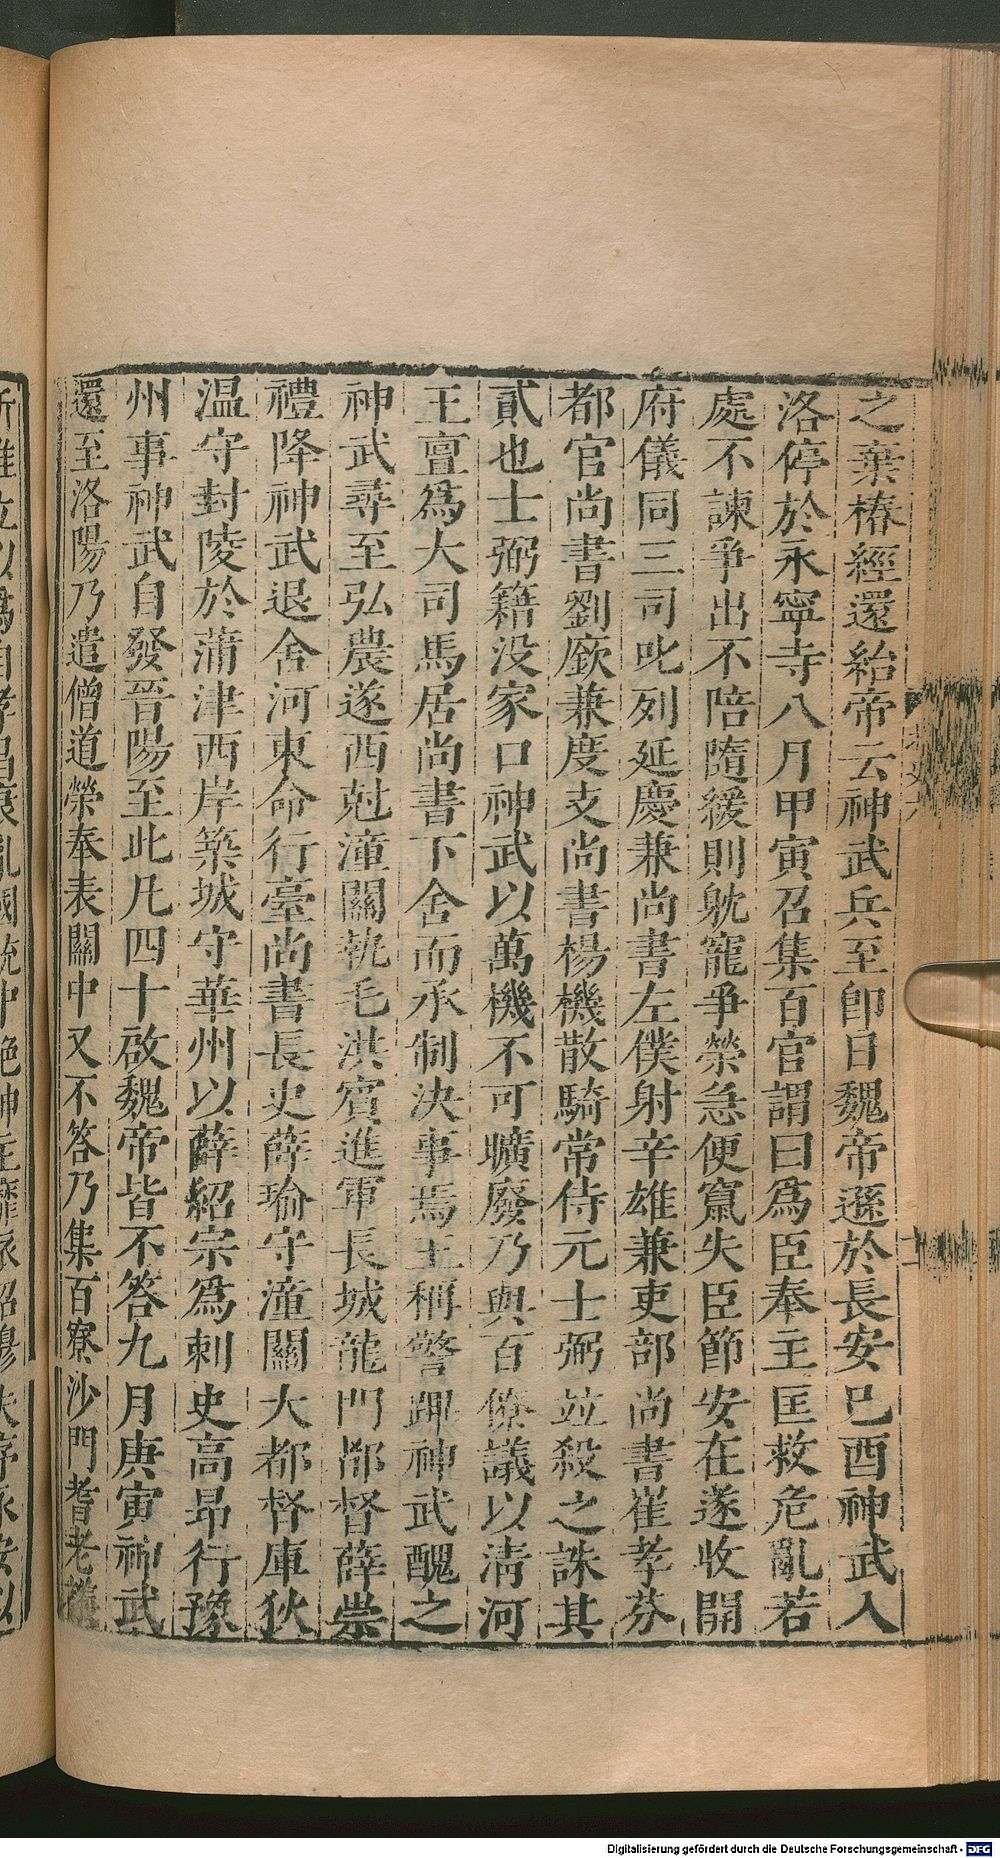 之棄椿經還紿帝云神武兵至即日魏帝遜於長安巳酉神武入
洛停於永寧寺八月甲寅召集百官謂曰爲臣奉主匡救危亂若
處不諫爭出不陪隨緩則躭寵爭榮急便竄失臣節安在遂收開
府儀同三司叱列延慶兼尚書左僕射辛雄兼吏部尚書崔孝芬
都官尚書劉廞兼度支尚書楊機散騎常侍元士弼竝殺之誅其
貳也士弼籍没家口神武以萬機不可曠廢乃與百僚議以淸河
王亶爲大司馬居尚書下舍而承制決事焉王稱警蹕神武醜之
神武尋至弘農遂西尅潼關執毛洪賓進軍長城龍門都督薛崇
禮降神武退舍河東命行臺尚書長史薛瑜守潼關大都督庫狄
温守封陵於蒲津西岸築城守華州以薛紹宗爲刺史高昂行豫
州事神武自發晉陽至此凡四十啟魏帝皆不答九月庚寅神武
還至洛陽乃遣僧道榮奉表關中又不答乃集百寮沙門耆老
Digitalisierung gefördert durch die Deutsche Forschungsgemeinschaft - DFG